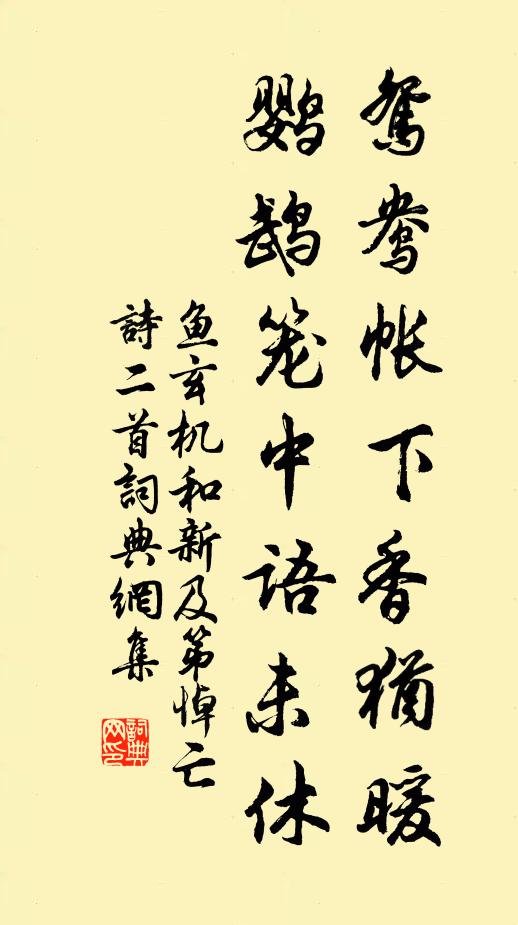 鸳鸯帐下香犹暖
鹦鹉笼中语未休
鱼玄机和新及第悼亡
詩二首詞典網集
詞典
网印